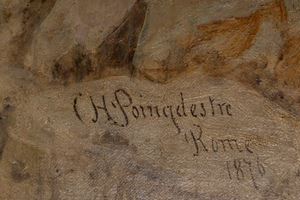 CH. Poingdestre
Rome
1876